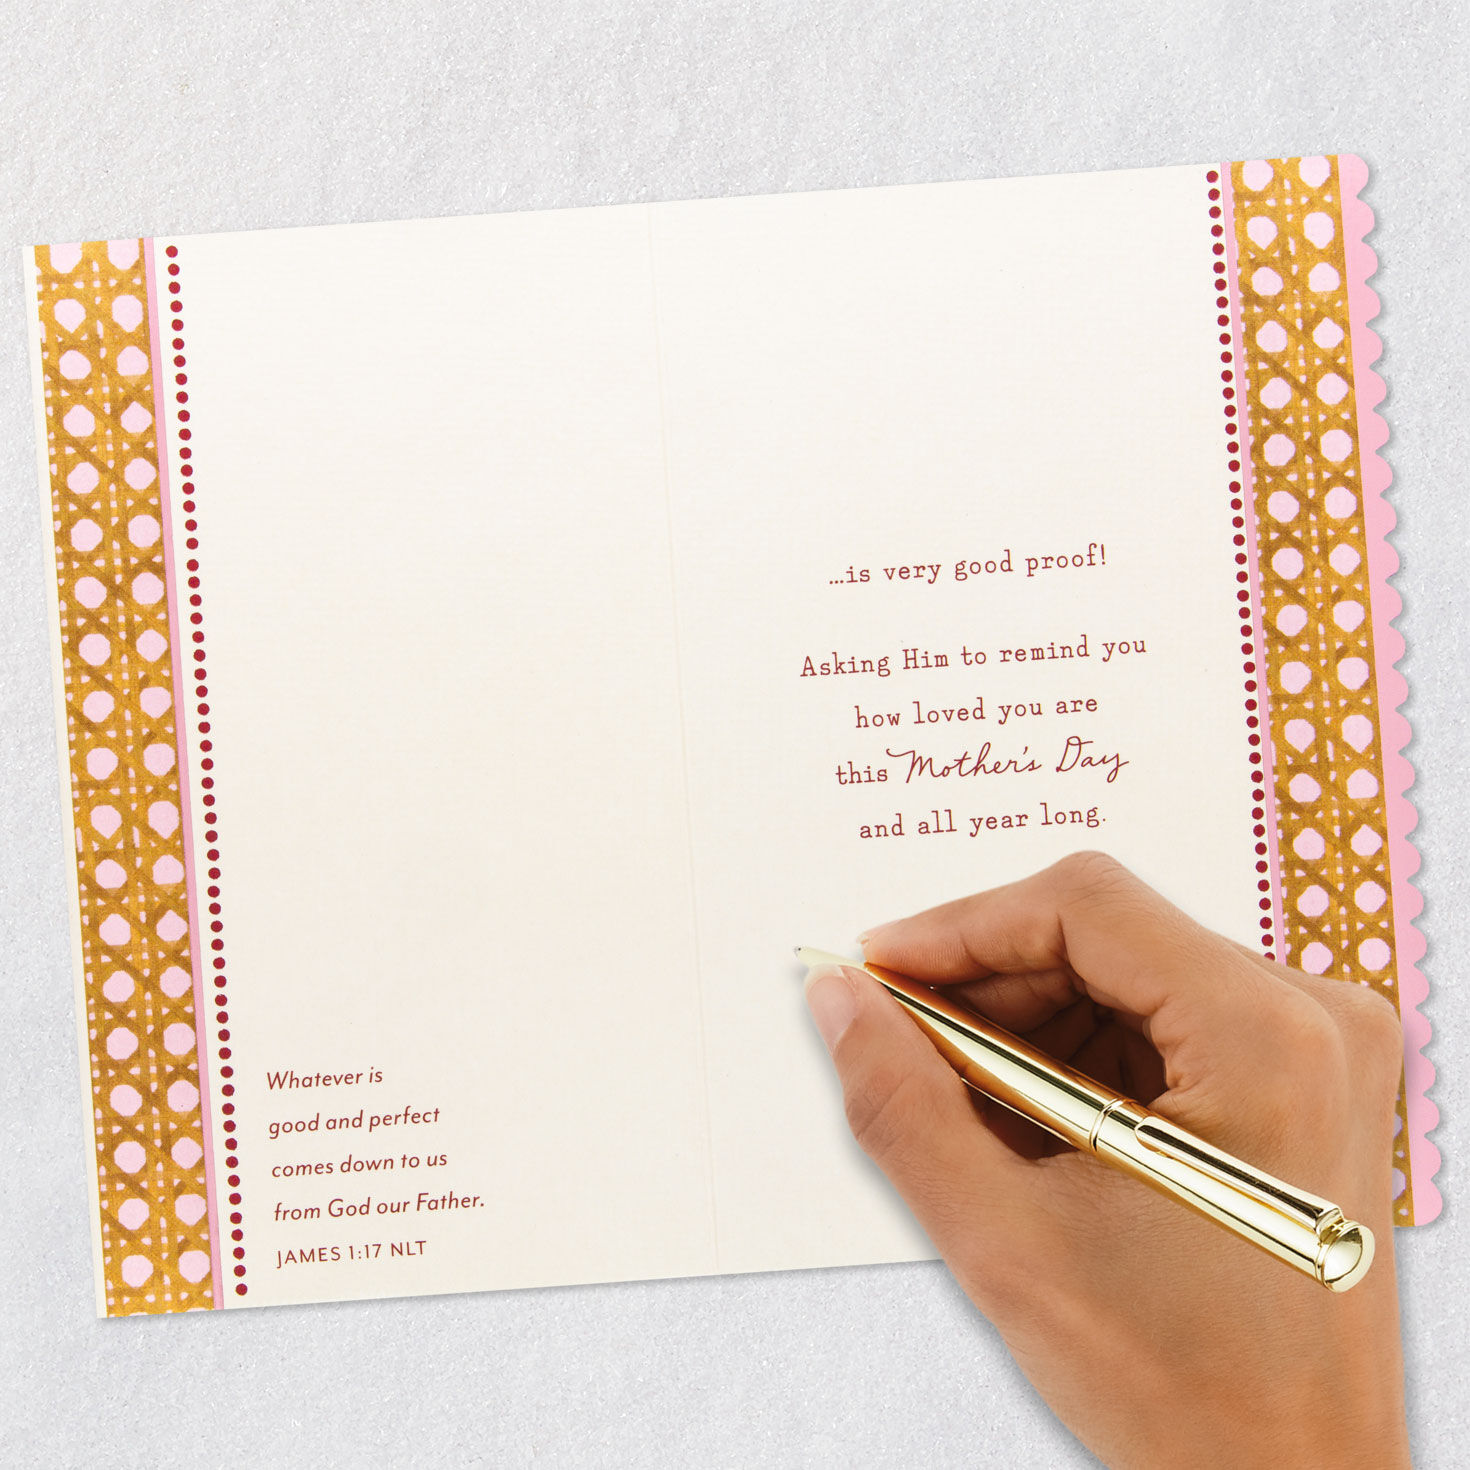 Whatever is
good and perfect
comes down to us
from God our Father.
JAMES 1:17 NLT
...is very good proof!
Asking Him to remind you
how loved you are
this Mother's Day
and all year long.